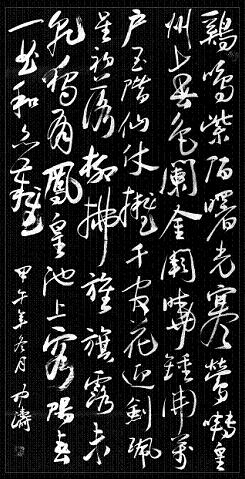 鷄鳴紫陌曙光寒鶯囀皇
州春色闌金闕曉鍾開萬
戶玉階仙仗擁千官花迎劍珮
星初落柳拂旌旗露未
乾獨有鳳皇池上客陽春
一曲和皆難
甲午年冬月 濤